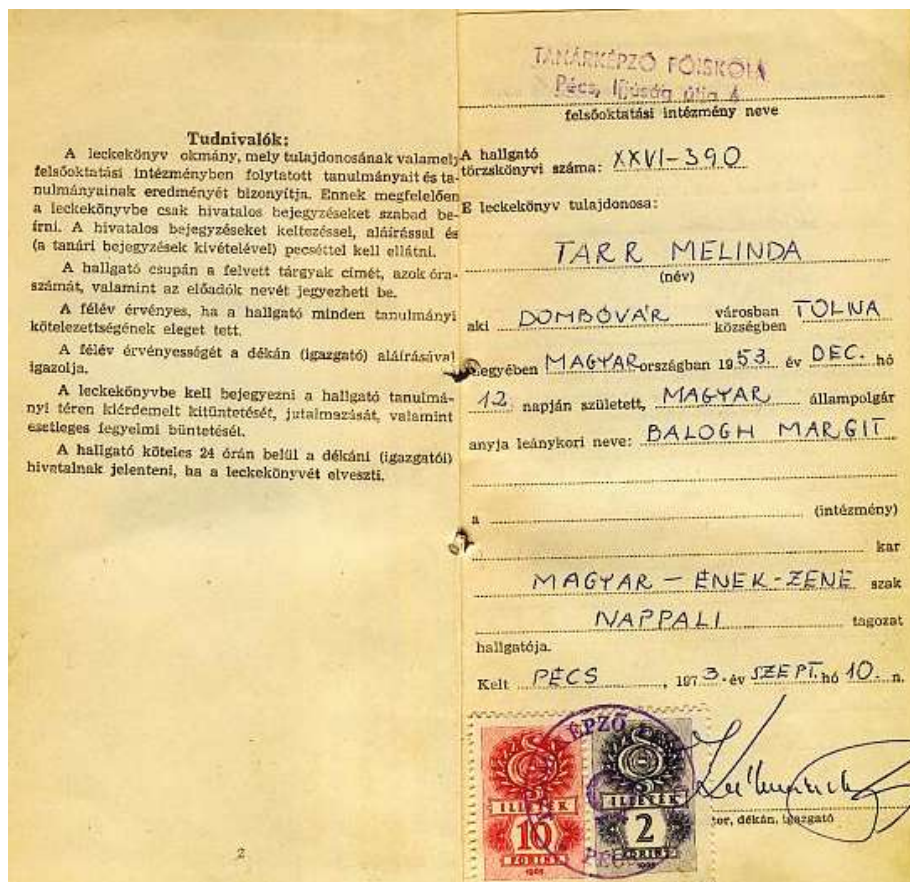 Tudnivalók:
A leckekönyv okmány, mely tulajdonosának valamely
felsőoktatási intézményben folytatott tanulmányait és ta-
nulmányainak eredményét bizonyítja. Ennek megfelelően
a leckekönyvbe csak hivatalos bejegyzéseket szabad be-
írni. A hivatalos bejegyzéseket keltezéssel, aláírással és
(a tanári bejegyzések kivételével) pecséttel kell ellátni.
A hallgató csupán a felvett tárgyak címét, azok óra-
számát, valamint az előadók nevét jegyezheti be.
A félév érvényes, ha a hallgató minden tanulmányi
kötelezettségének eleget tett.
A félév érvényességét a dékán (igazgató) aláírásával
igazolja.
A leckekönyvbe kell bejegyezni a hallgató tanulmá-
nyi téren kiérdemelt kitüntetését, jutalmazását, valamint
esetleges fegyelmi büntetését.
A hallgató köteles 24 órán belül a dékáni (igazgatói)
hivatalnak jelenteni, ha a leckekönyvét elveszti.
2
TANÁRKÉPZŐ FŐISKOLA
Pécs, Ifjúság útja 6
felsőoktatási intézmény neve
A hallgató
törzskönyvi száma: XXVI-390
E leckekönyv tulajdonosa:
TARR MELINDA
(név)
aki DOMBÓVÁR városban községben TOLNA
megyében MAGYARországban 1953. év DEC. hó
12. napján született, MAGYAR állampolgár
anyja leánykori neve: BALOGH MARGIT
a (intézmény)
kar
MAGYAR – ÉNEK-ZENE szak
NAPPALI tagozat
hallgatója.
Kelt PÉCS, 1973. év SZEPT. hó 10. n.
ÉPZŐ
ILLETÉK ILLETÉK
10 2
FORINT FORINT
PÉCS
tor, dékán, igazgató